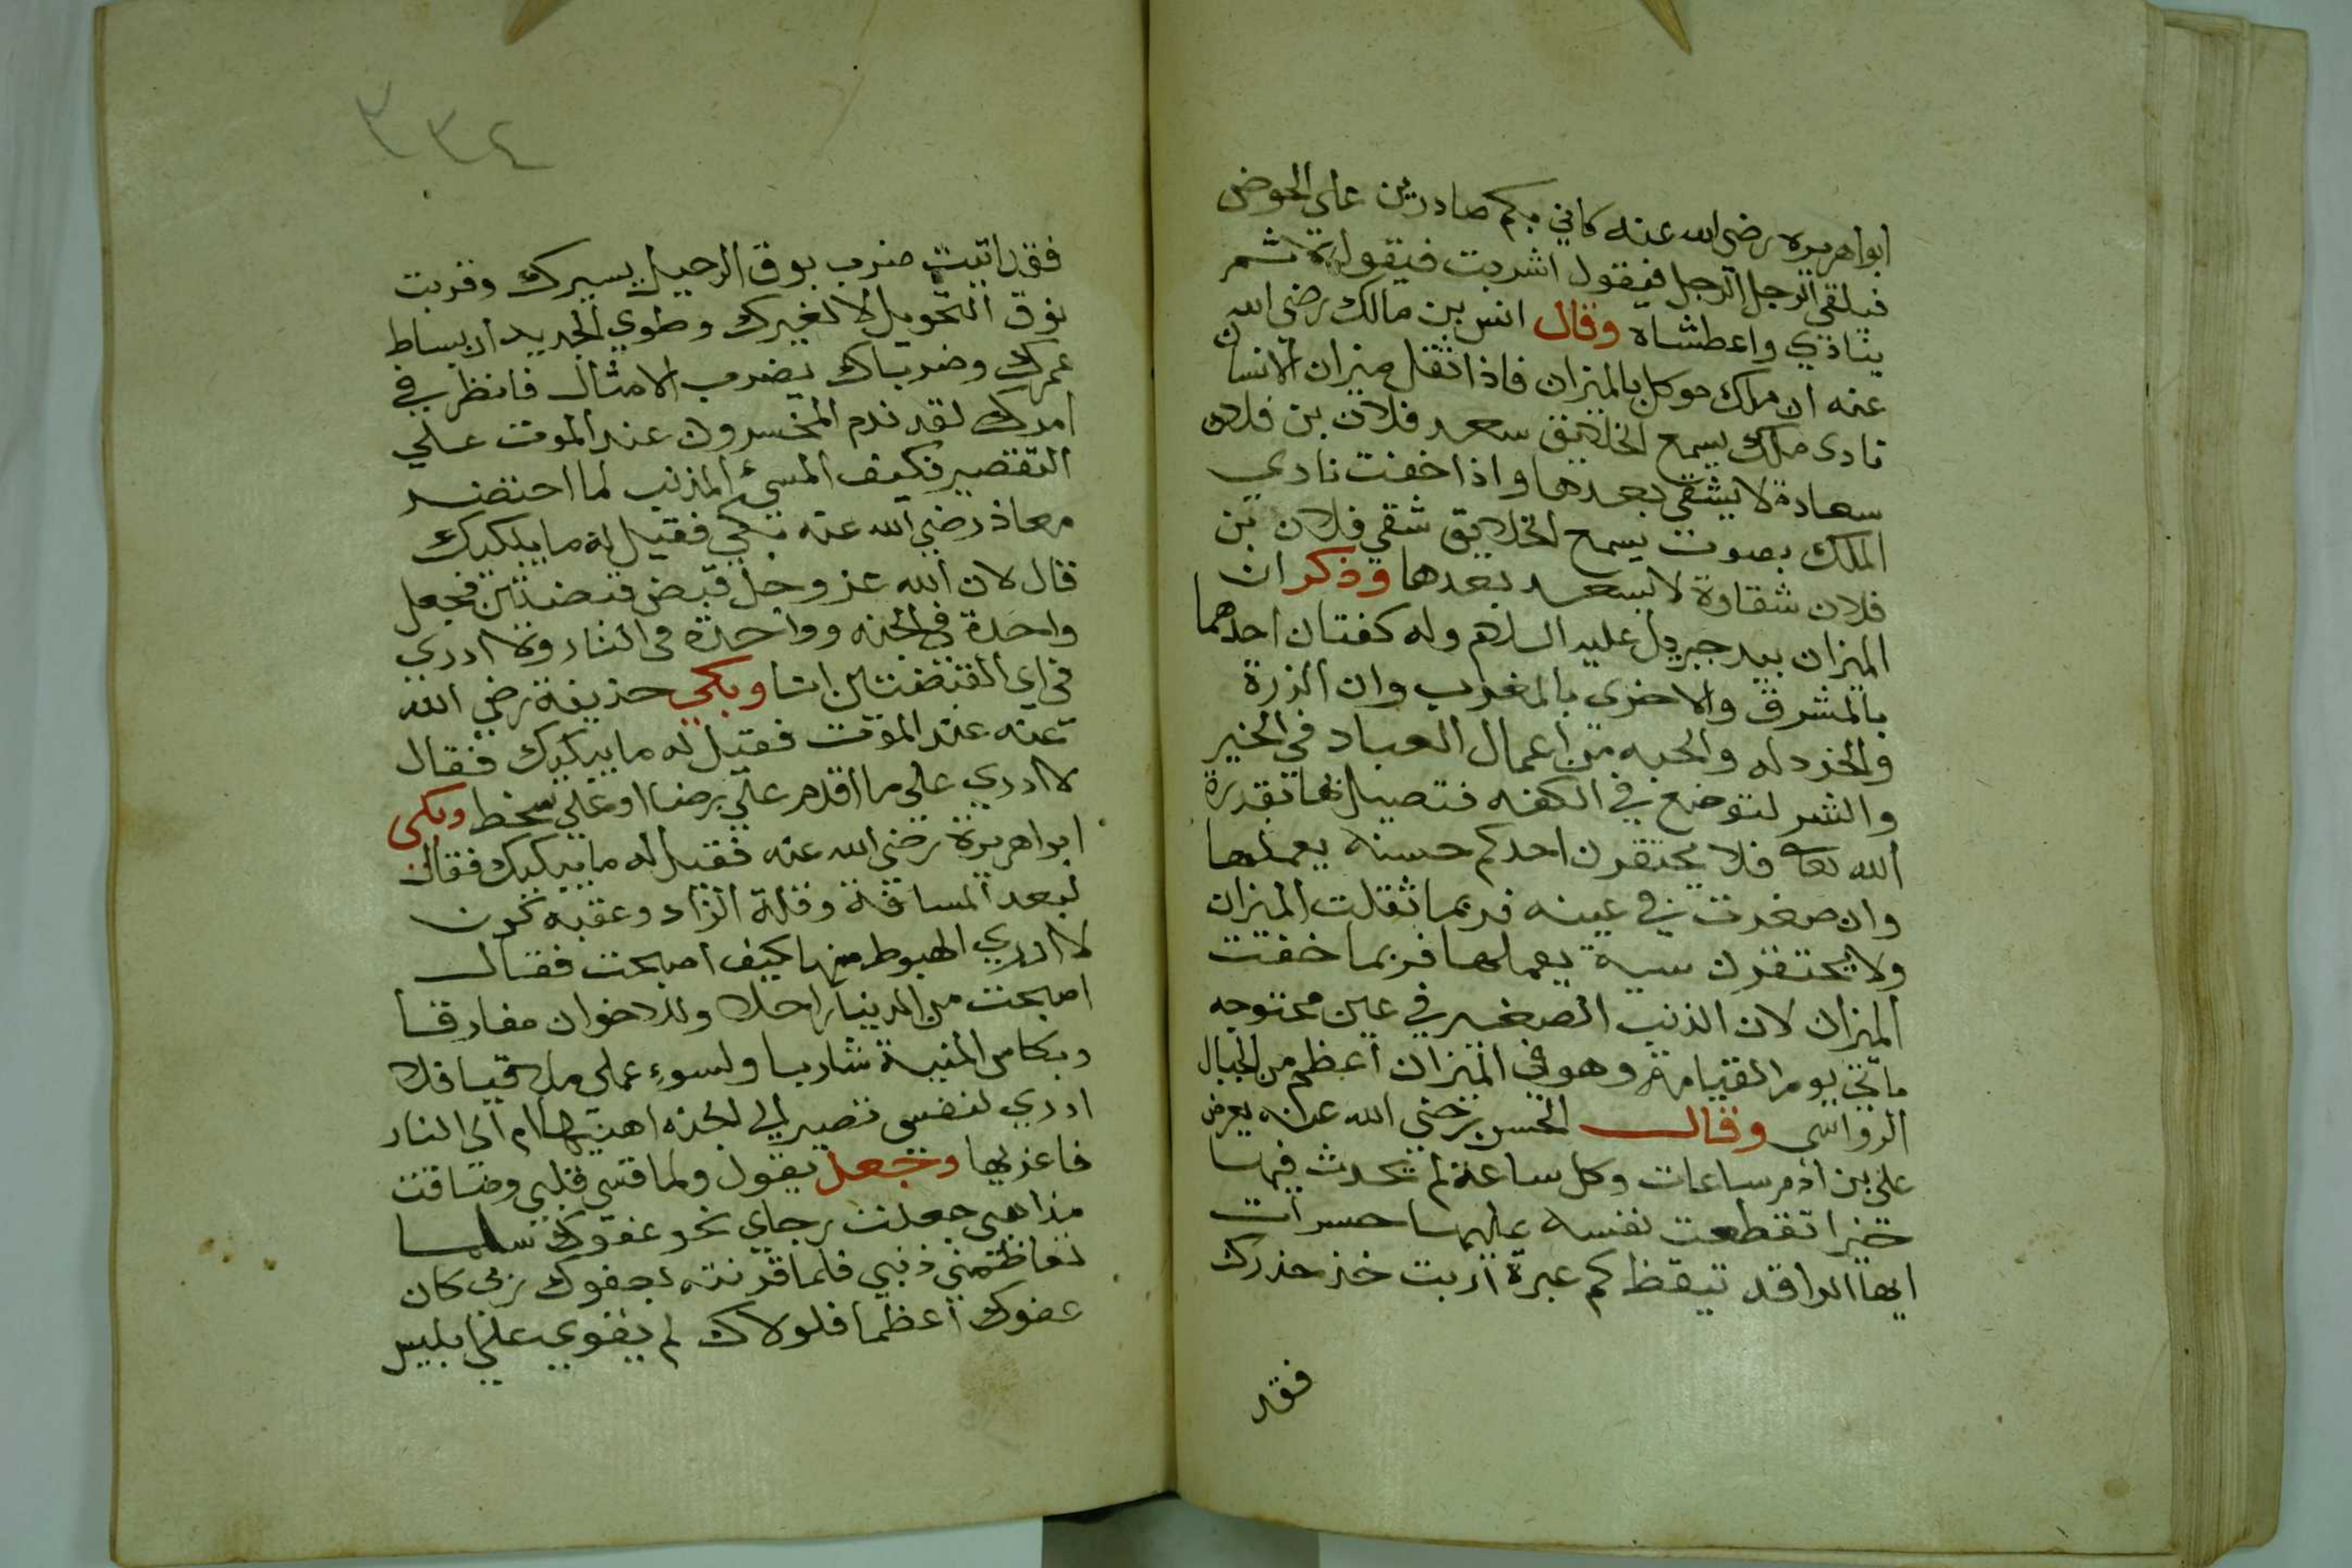 ابواهريره رضي الله عنه كاني بكم صادرين على الحوض
فيلقي الرجل الرجل فيقول اشربت فيقول لا ثم
ينادي واعطشاه وقال انس بن مالك رضي الله
عنه ان ملك موكل بالميزان فاذا ثقل ميزان الانسان
نادى ملك يسمع الخلايق سعد فلان بن فلان
سعادة لا يشقي بعدها واذا خفت نادي
الملك بصوت يسمع الخلايق شقي فلان بن
فلان شقاوة لا يسعد بعدها وذكر ان
الميزان بيد جبريل عليه السلام وله كفتان احدهما
بالمشرق والاخرى بالمغرب وان الذرة
والخردله والحبه من اعمال العباد في الخير
والشر لتوضع في الكفه فتميل بها بقدرة
الله تعالى فلا يحتقرن احدكم حسنه يعملها
وان صغرت في عينه فربما ثقلت الميزان
ولا يحتقرن سية يعملها فربما خفت
الميزان لان الذنب الصغير في عين
ياتي يوم القيامة وهو في الميزان اعظم من الجبال
الرواسي وقال الحسن رضي الله عنه يعرض
على بن ادم ساعات وكل ساعة لم يحدث فيها
خيرا تقطعت نفسه عليها حسرات
ايها الراقد تيقظ كم عبرة اريت خذ حذرك
فقد
٣٣٤
فقد اتيت ضرب بوق الرحيل يسيرك وقربت
نوق التحويل لا لغيرك وطوي الجديدان بساط
عمرك وضرباك بضرب الامثال فانظر في
امرك لقد ندم المخسرون عند الموت علي
التقصير فكيف المسيء المذنب لما احتضر
معاذ رضي الله عنه بكي فقيل له ما يبكيك
قال لان الله عز وجل قبض قبضتين فجعل
واحدة في الجنه وواحدة في النار ولا ادري
في اي القبضتين انا وبكي حذيفة رضي الله
عنه عند الموت فقيل له ما يبكيك فقال
لا ادري على ما اقدم على رضا او على سخط وبكى
ابواهريرة رضي الله عنه فقيل له ما يبكيك فقال
لبعد المسافة وقلة الزاد وعقبه
لا ادري الهبوط منها كيف اصبحت فقال
اصبحت من الدنيا راحلا وللاخوان مفارقا
وبكاس المنية شاربا ولسوء عملي ملاقيا فلا
ادري لنفسي تصير الي الجنه اهنيها ام الى النار
فاعزيها وجعل يقول ولما قسى قلبي وضاقت
مذاهبي جعلت رجاي نحو عفوك سلما
تعاظمني ذنبي فلما قرنته بعفوك ربي كان
عفوك اعظما فلولاك لم يغوي ابليس